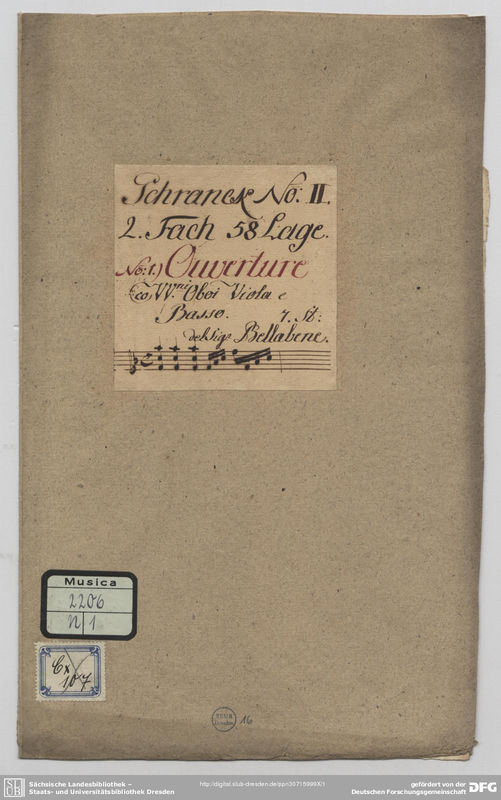 Schranck No: II.
2. Fach 58 Lage.
No: 1.) Ouverture
co VV.ni Oboi Viola e
Basso. 7. St:
del Sig. Bellabene.
Musica
2206
N 1
Cx
107
16
Sächsische Landesbibliothek –
Staats- und Universitätsbibliothek Dresden
http://digital.slub-dresden.de/ppn30715999X/1
gefördert von der
Deutschen Forschungsgemeinschaft
DFG